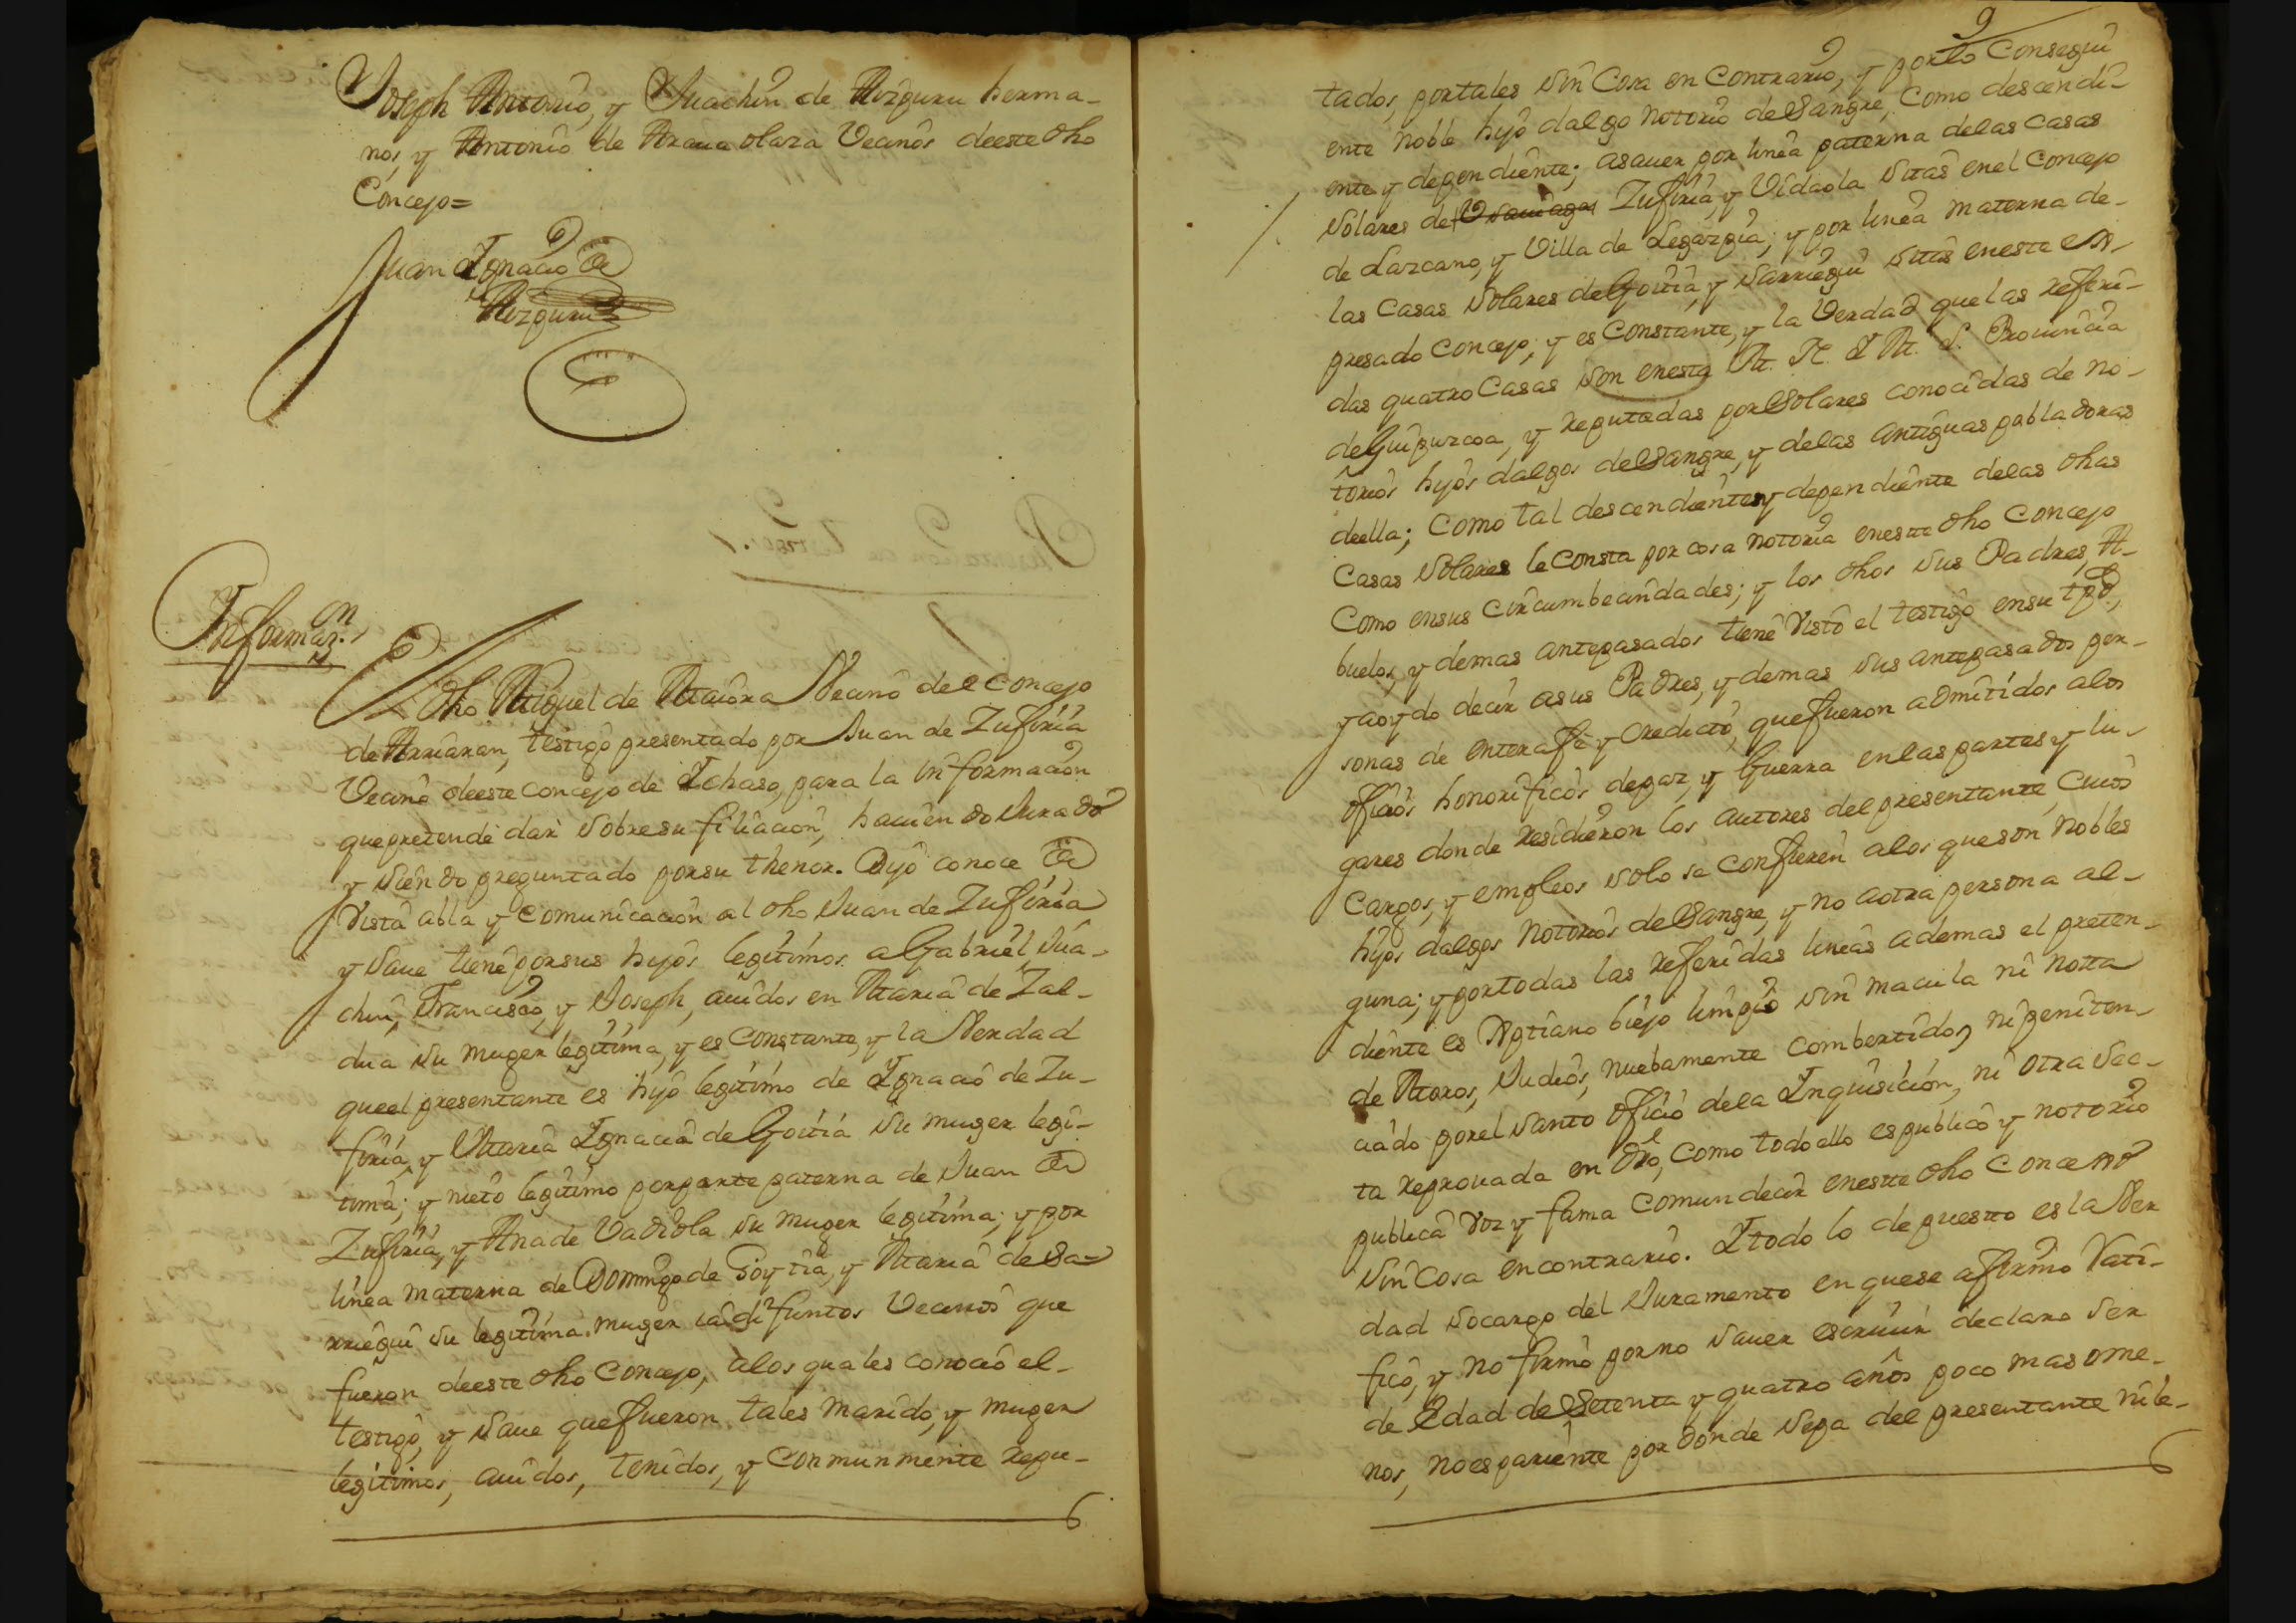 Joseph Antonio, y Juachin de Aizpuru herma-
nos, y Antonio de Arana olaza Vecinos deeste dho
Concejo=
Juan Ignacio de
Aizpuru
Informaz.on
El dho Miguel de Maiora Vecino del Concejo
de Arriaran, testigo presentado por Juan de Zufiria
Vecino deeste concejo de Ichaso, para la informacion
que pretende dar sobre su filiacion, haviendo Jurado
y siendo preguntado por su thenor. Dijo conoce de
Vista abla y comunicacion al dho Juan de Zufiria
y save tiene por sus hijos legitimos a Gabriel, Jua-
chin, Francisco, y Joseph, avidos en Maria de Zal-
dua su muger legitima, y es Constante, y la Verdad
queel presentante es hijo legitimo de Ignacio de Zu-
firia, y Maria Ignacia de Goitia su muger legi-
tima; y nieto legitimo por parte paterna de Juan de
Zufiria, y Ana de Vadiola su muger legitima; y por
linea materna de Domingo de Goytia, y Maria de Sa=
rriegui su legitima muger ia difuntos Vecinos que
fueron deeste dho Concejo, alos quales conocio el-
testigo, y save que fueron tales marido, y muger
legitimos, avidos, tenidos, y Conmunmente repu-
9
tados, por tales sin Cosa en contrario, y por lo Consegui
ente noble hijo dalgo notorio de Sangre, Como descendi-
ente y dependiente; asaver por linea paterna delas casas
Solares de Zufiria, y Vidaola sitas enel Concejo
de Lazcano, y Villa de Legazpia; y por linea materna de-
las Casas Solares de Goitia, y Sarriegui sitas eneste es-
presado Concejo; y es Constante, y la Verdad que las referi-
das quatro Casas son enesta M. N. Y M. L. Provincia
de Guipuzcoa, y reputadas por Solares conocidas de no-
torios hijos dalgos de Sangre, y delas antiguas pobladoras
deella; Como tal descendiente y dependiente delas dhas
Casas Solares le Consta por cosa notoria eneste dho Concejo
Como ensus circumbecindades; y los dhos sus Padres, A-
buelos, y demas antepasados tiene visto el testigo ensu tpo,
y aoydo decir asus Padres, y demas sus antepasados per-
sonas de entera fe y Credito, que fueron admitidos alos
oficios honorificos de paz, y Guerra enlas partes y lu-
gares donde residieron los autores del presentante, Cuios
Cargos, y empleos solo se Confieren alos que son nobles
hijos dalgos notorios de Sangre, y no aotra persona al-
guna; y por todas las referidas lineas ademas el preten-
diente es Xptiano biejo limpio sin macula ni notta
de Moros, Judios, nuebamente combertidos, ni peniten-
ciado por el santo oficio dela Inquisicion, ni otra Sec-
ta reprovada en dro, Como todo ello es publico y notorio
publica voz y fama comun decir enestte dho Concejo
sin Cosa en contrario. Y todo lo depuesto es la Ver
dad socargo del Juramento en que se afirmo rati-
fico, y no firmo por no saver escrivir declaro ser
de Edad de Setenta y quatro años poco mas ome-
nos, no es pariente por donde sepa del presentante nile-